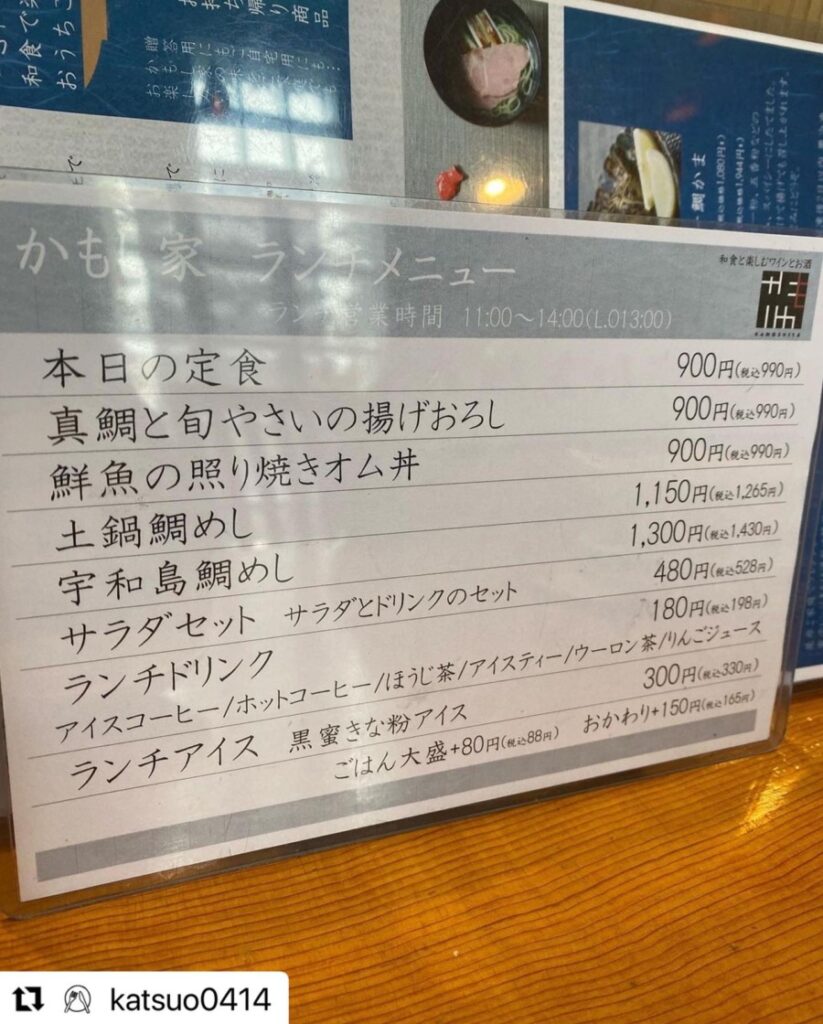 和食で楽
おうちご
お持ち帰り商品
贈答用にも、ご自宅用にも…
鯛かま
(税込価格1,080円)
(税込価格1,944円)
かもし家 ランチメニュー
和食と楽しむワインとお酒
KAMOSHIYA
ランチ営業時間 11:00〜14:00(L.O13:00)
本日の定食 900円(税込990円)
真鯛と旬やさいの揚げおろし 900円(税込990円)
鮮魚の照り焼きオム丼 900円(税込990円)
土鍋鯛めし 1,150円(税込1,265円)
宇和島鯛めし 1,300円(税込1,430円)
サラダセット サラダとドリンクのセット 480円(税込528円)
ランチドリンク 180円(税込198円)
アイスコーヒー/ホットコーヒー/ほうじ茶/アイスティー/ウーロン茶/りんごジュース
ランチアイス 黒蜜きな粉アイス 300円(税込330円)
ごはん大盛+80円(税込88円) おかわり+150円(税込165円)
katsuo0414